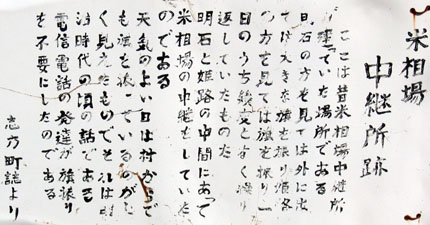 米相場
中継所跡
ここは昔米相場中継所
が建っていた場所である
明石の方を見ては外に出
ては大きな旗を振り姫路
の方を見ては旗を振り一
日のうち幾度となく繰り
返していたものだ
明石と姫路の中間にあって
米相場の中継をしていた
のである
天気のよい日は村からで
も旗を振っているのがよ
く見えたものでそれは明
治時代の頃の話である
電信電話の発達が旗振り
を不要にしたのである
志方町誌より